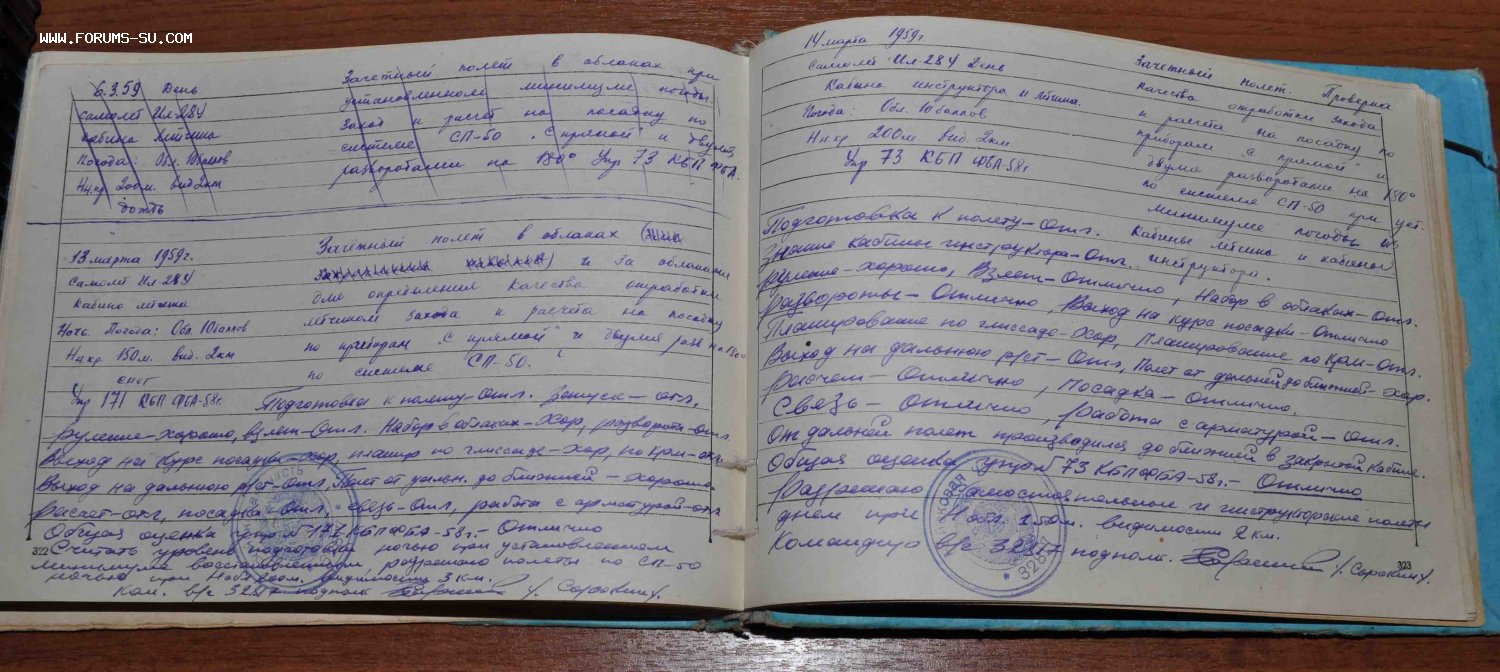 WWW.FORUMS-SU.COM
6.3.59 День Зачетный полет в облаках при
самолет Ил 28У установленном минимуме погоды.
кабина летчика Заход и расчет на посадку по
Погода: Обл. 10баллов системе СП-50 „С прямой" и двумя
Н н.кр 200м. вид 2км разворотами на 180° Упр 73 КБП ФБА.
дождь
13 марта 1959г. Зачетный полет в облаках
Самолет Ил 28У и за облаками
Кабина летчика для определения качества отработки
Ночь. Погода: Обл. 10баллов летчиком захода и расчета на посадку
Н н.кр. 150м. вид. 2км по приборам „с прямой" и двумя разв на 180°
снег по системе СП-50.
Упр 171 КБП ФБА-58г. Подготовка к полету-Отл. Запуск-отл.
руление-хорошо, взлет-Отл. Набор в облаках-Хор, развороты-отл
Выход на курс посадки-хор, планир по глиссаде-хор, по
Выход на дальнюю р/ст-Отл, Полет от дальн. до ближней-хорошо.
расчет-отл, посадка-Отл, связь-Отл, работа с арматурой-отл
Общая оценка упр N 171 КБП ФБА-58г.-Отлично
Считать уровень подготовки ночью при установленном
минимуме восстановленным разрешаю полеты по СП-50
ночью при видимости 3 км.
Ком. в/ч 32817 подполк /Сорокин/.
322
14 марта 1959г.
самолет Ил-28У День Зачетный полет. Проверка
Кабина инструктора и летчика. качества отработки захода
Погода: Обл. 10баллов и расчета на посадку по
Н н.кр 200м. вид. 2км. приборам „с прямой" и
Упр 73 КБП ФБА-58г двумя разворотами на 180°
по системе СП-50 при уст.
минимуме погоды из
Подготовка к полету-Отл. кабины летчика и кабины
Знание кабины инструктора-Отл. инструктора.
руление-хорошо, Взлет-Отлично, Набор в облаках-Отл.
развороты-Отлично, Выход на курс посадки-Отлично
Планирование по глиссаде-Хор, Планирование по
Выход на дальнюю р/ст-Отл, Полет от дальней до ближней-хор.
расчет-Отлично, Посадка-Отлично.
Связь-Отлично, работа с арматурой-Отл.
От дальней полет производился до ближней в закрытой кабине.
Общая оценка упр N 73 КБП ФБА-58г.-Отлично
Разрешаю самостоятельные и инструкторские полеты
днем при видимости 2 км.
Командир в/ч 32817 подполк. /Сорокин/.
323